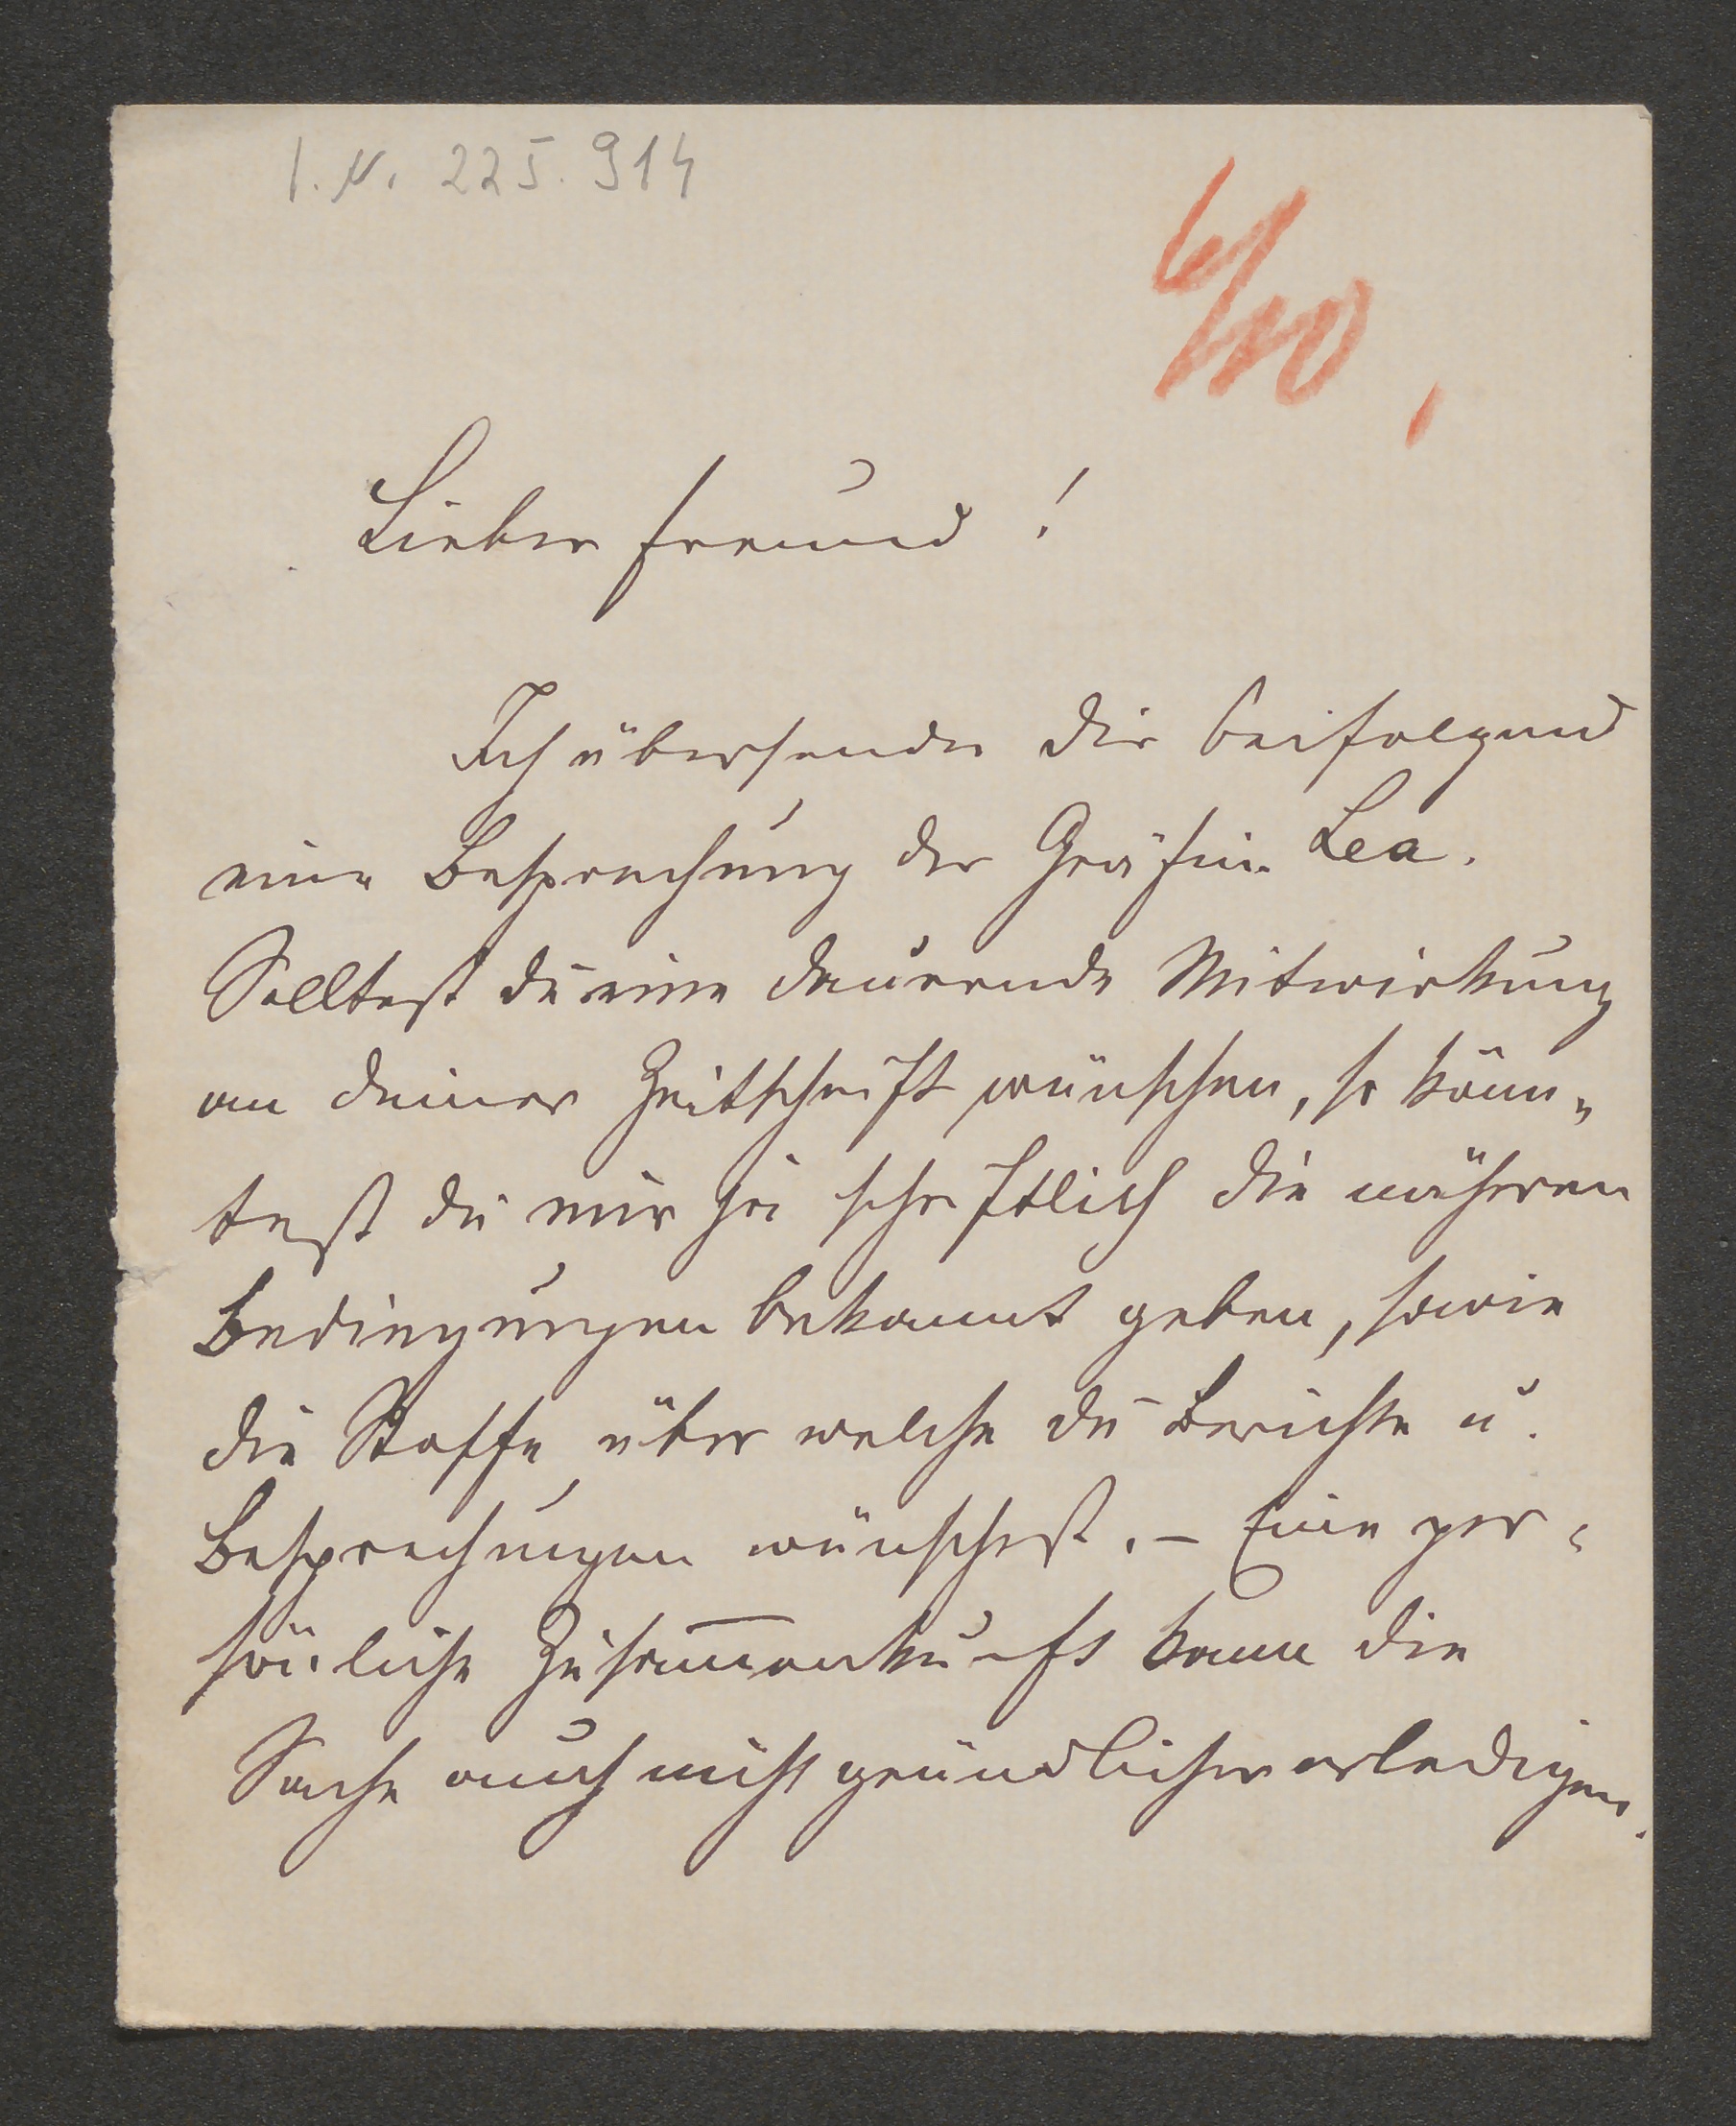 I. N. 225.914
6/10.
Lieber Freund!
Ich übersende dir beifolgend
eine Besprechung der Gräfin Lea.
Solltest du eine dauernde Mitwirkung
an deiner Zeitschrift wünschen, so könn-
test du mir ja schriftlich die näheren
Bedingungen bekannt geben, sowie
die Stoffe über welche du Berichte u.
Besprechungen wünschest. – Eine per-
sönliche Zusam̅enkunft kann die
Sache auch nicht gründlicher erledigen.